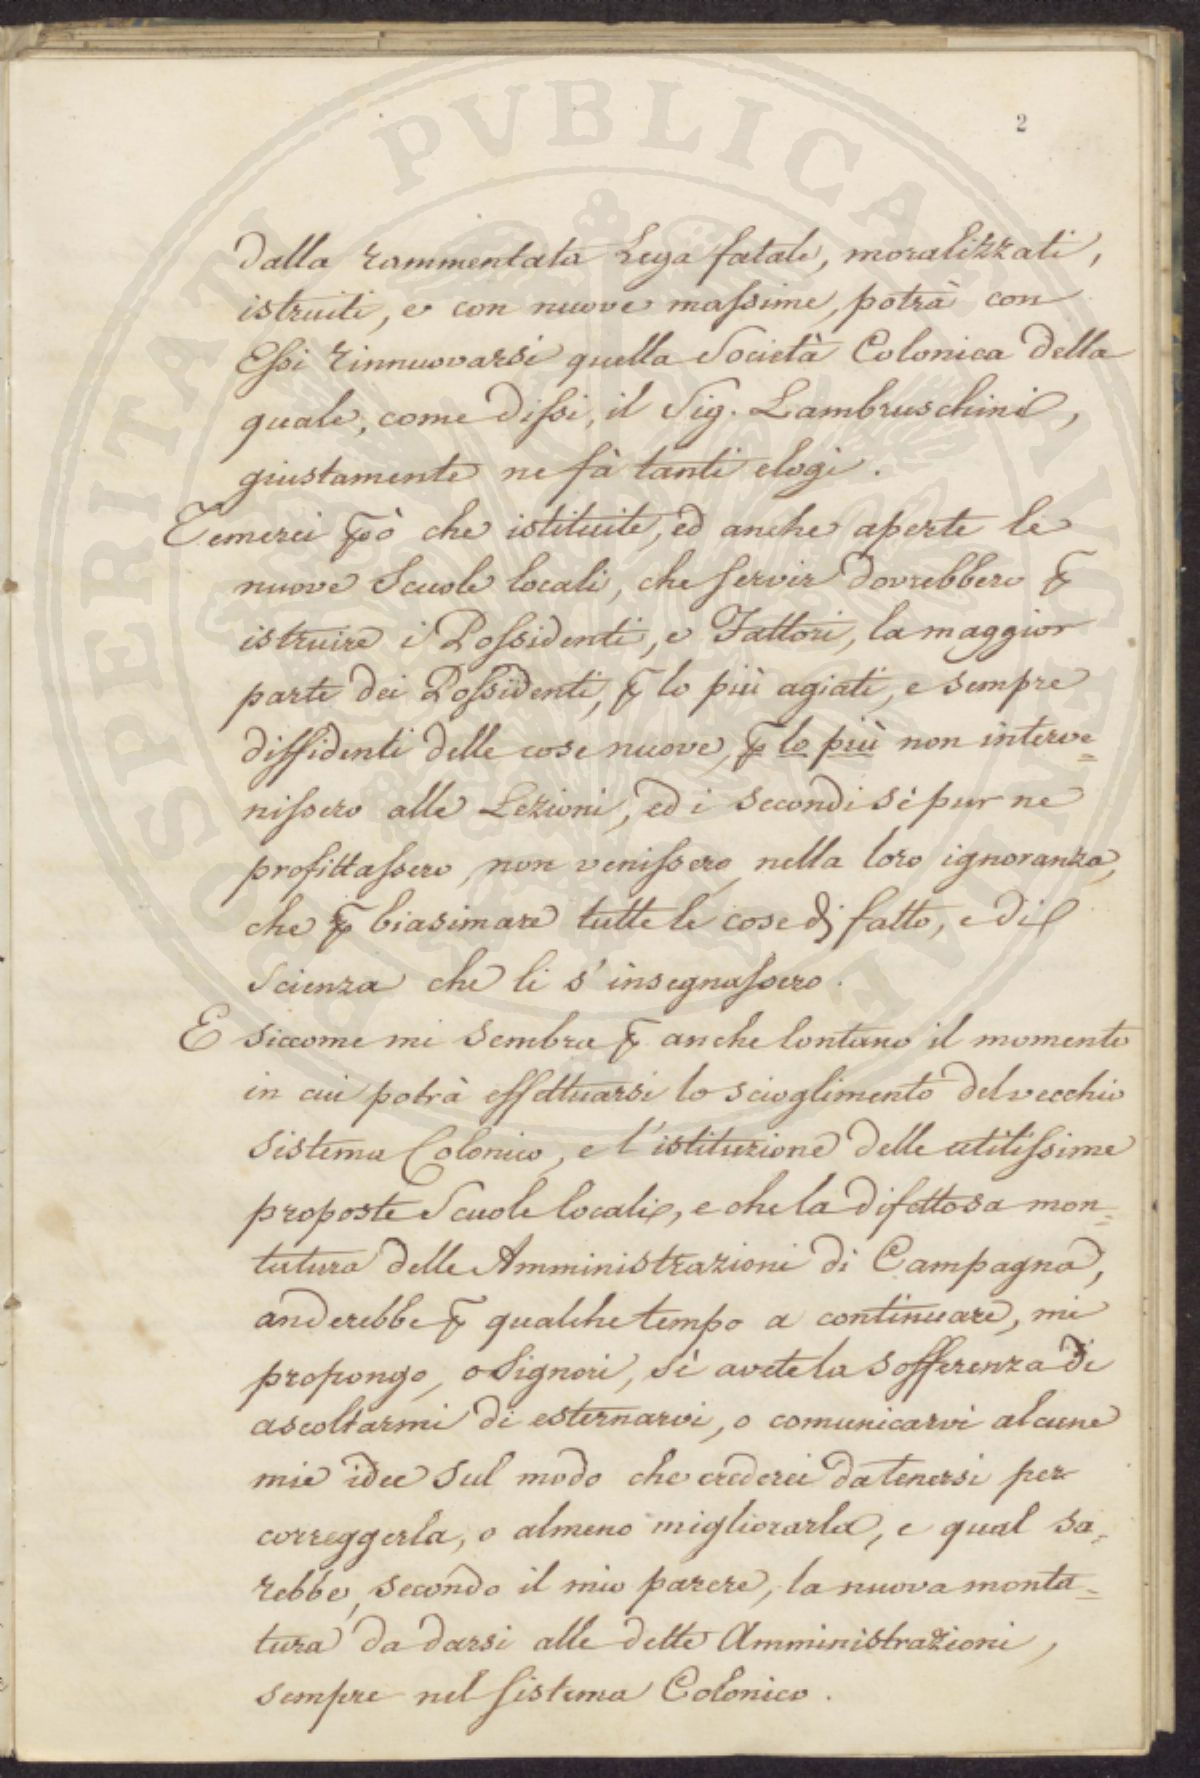 2
dalla rammentata Lega fatale, moralizzati,
istruiti, e con nuove massime, potrà con
Essi rinnuovarsi quella Società Colonica della
quale, come dissi, il Sig. Lambruschini,
giustamente ne fà tanti elogi.
Temerei ꝑò che istituite, ed anche aperte le
nuove Scuole locali, che servir dovrebbero ꝑ
istruire i Possidenti, e Fattori, la maggior
parte dei Possidenti, ꝑ lo più agiati, e sempre
diffidenti delle cose nuove, ꝑ lo più non interve=
nissero alle Lezioni, ed i secondi sè pur ne
profittassero, non venissero, nella loro ignoranza,
che ꝑ biasimare tutte le cose di fatto, e di
Scienza che li s'insegnassero.
E siccome mi sembra ꝑ anche lontano il momento
in cui potrà effettuarsi lo scioglimento del vecchio
sistema Colonico, e l'istituzione delle utilissime
proposte Scuole locali, e che la difettosa mon=
tatura delle Amministrazioni di Campagna,
anderebbe ꝑ qualche tempo a continuare, mi
propongo, o Signori, sè avete la sofferenza di
ascoltarmi di esternarvi, o comunicarvi alcune
mie idee sul modo che crederei da tenersi per
correggerla, o almeno migliorarla, e qual sa=
rebbe, secondo il mio parere, la nuova monta=
tura da darsi alle dette Amministrazioni,
sempre nel sistema Colonico.
PROSPERITATI PVBLICAE AVGENDAE